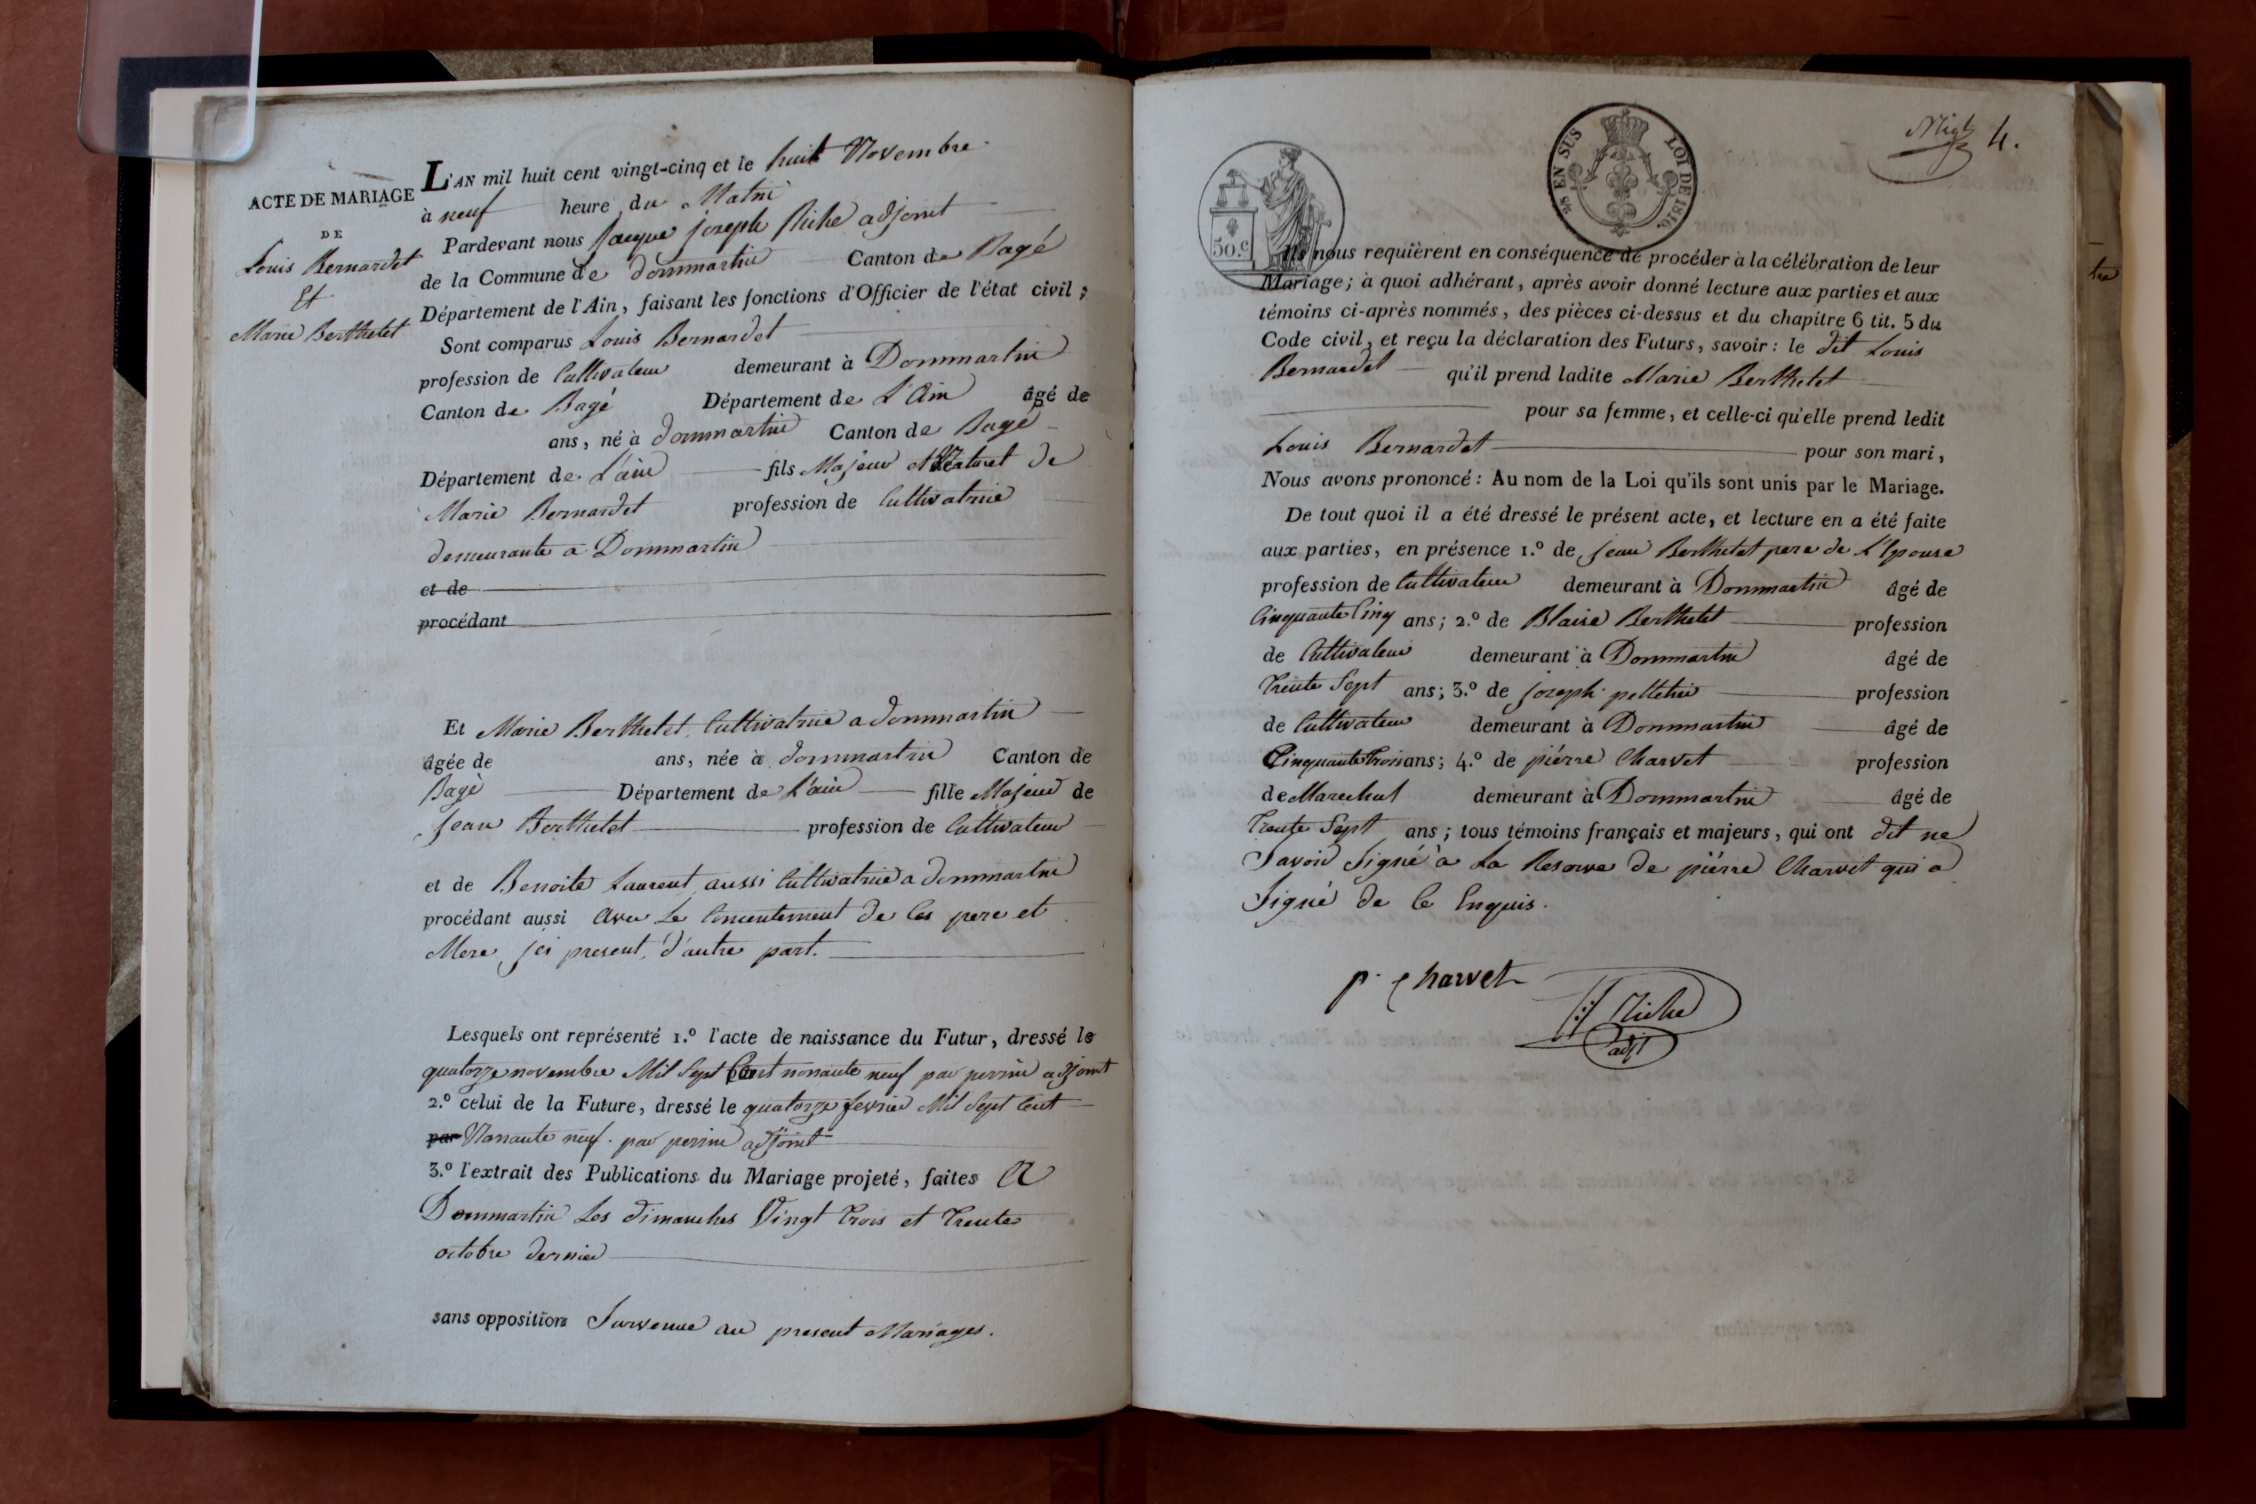 ACTE DE MARIAGE
DE
Louis Bernardet
Et
Marie Berthelet
L'AN mil huit cent vingt-cinq et le huit Novembre
à neuf heure du Matin
Pardevant nous Jacque joseph Riche adjoint
de la Commune de dommartin Canton de Bagé
Département de l'Ain, faisant les fonctions d'Officier de l'état civil ;
Sont comparus Louis Bernardet
profession de Cultivateur demeurant à Dommartin
Canton de Bagé Département de L'Ain âgé de
ans, né à dommartin Canton de Bagé
Département de L'ain fils Majeur et Naturel de
Marie Bernardet profession de Cultivatrice
demeurante a Dommartin
et de
procédant
Et Marie Berthelet Cultivatrice a dommartin
âgée de ans, née à dommartin Canton de
Bagé Département de L'ain fille Majeur de
Jean Berthelet profession de Cultivateur
et de Benoite Laurent aussi Cultivatrice a dommartin
procédant aussi Avec Le Concentement de Ces pere et
Mere jci present, d'autre part.
Lesquels ont représenté 1.º l'acte de naissance du Futur, dressé le
quatorze novembre Mil Sept Cent nonante neuf par perrin adjoint
2.º celui de la Future, dressé le quatorze fevrier Mil Sept Cent
par Nonante neuf. par perrin adjoint
3.º l'extrait des Publications du Mariage projeté, faites A
Dommartin Les dimanches Vingt Trois et Trente
octobre dernier
sans opposition Survenue au present Mariages.
4.
50.c
EN SUS LOI DE 1816
Ils nous requièrent en conséquence de procéder à la célébration de leur
Mariage ; à quoi adhérant, après avoir donné lecture aux parties et aux
témoins ci-après nommés, des pièces ci-dessus et du chapitre 6 tit. 5 du
Code civil, et reçu la déclaration des Futurs, savoir : le dit Louis
Bernardet qu'il prend ladite Marie Berthelet
pour sa femme, et celle-ci qu'elle prend ledit
Louis Bernardet pour son mari,
Nous avons prononcé : Au nom de la Loi qu'ils sont unis par le Mariage.
De tout quoi il a été dressé le présent acte, et lecture en a été faite
aux parties, en présence 1.º de jean Berthelet pere de L'Epouse
profession de Cultivateur demeurant à Dommartin âgé de
Cinquante Cinq ans ; 2.º de Blaise Berthelet profession
de Cultivateur demeurant à Dommartin âgé de
Trente Sept ans ; 3.º de joseph pelletin profession
de Cultivateur demeurant à Dommartin âgé de
Cinquante Trois ans ; 4.º de piérre Charvet profession
de Marechal demeurant à Dommartin âgé de
Trente Sept ans ; tous témoins français et majeurs, qui ont dit ne
Savoir Signé à La Reserve de piérre Charvet qui a
Signé de Ce Enquis.
p. Charvet
Riche
adjt